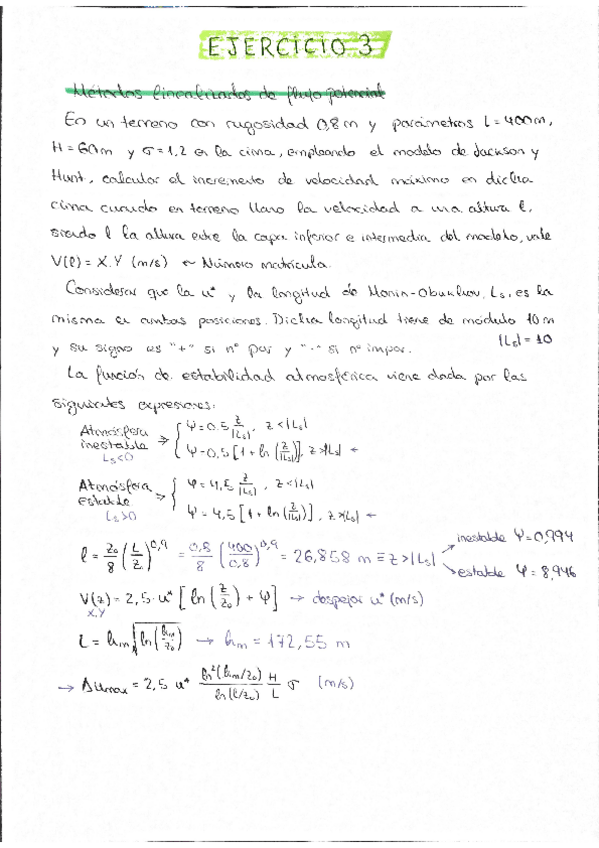 EJERCICIO 3
Métodos linealizados de flujo potencial
En un terreno con rugosidad 0,8 m y parámetros L = 400 m,
H = 60 m y σ = 1,2 en la cima, empleando el modelo de Jackson y
Hunt, calcular el incremento de velocidad máximo en dicha
cima cuando en terreno llano la velocidad a una altura l,
siendo l la altura entre la capa inferior e intermedia del modelo, vale
V(l) = X.Y (m/s) ← Número matrícula.
Considerar que la u* y la longitud de Monin-Obukhov, Ls, es la
misma en ambas posiciones. Dicha longitud tiene de módulo 10 m
y su signo es "+" si nº par y "-" si nº impar. |Ls| = 10
La función de estabilidad atmosférica viene dada por las
siguientes expresiones:
Atmósfera inestable Ls<0 ⇒ { Ψ = 0.5 z/|Ls|, z<|Ls|
Ψ = 0,5 [1 + ln(z/|Ls|)], z>|Ls| ←
Atmósfera estable Ls>0 ⇒ { Ψ = 4,5 z/|Ls|, z<|Ls|
Ψ = 4,5 [1 + ln(z/|Ls|)], z>|Ls| ←
l = z₀/8 (L/z)^0,9 = 0,8/8 (400/0,8)^0,9 = 26,858 m ≡ z>|Ls| → inestable Ψ = 0,994
→ estable Ψ = 8,946
V(z) = 2,5 · u* [ln(z/z₀) + Ψ] → despejar u* (m/s)
X,Y
L = hm √ln(hm/z₀) → hm = 172,55 m
→ Δumax = 2,5 u* ln²(hm/z₀)/ln(l/z₀) H/L σ (m/s)